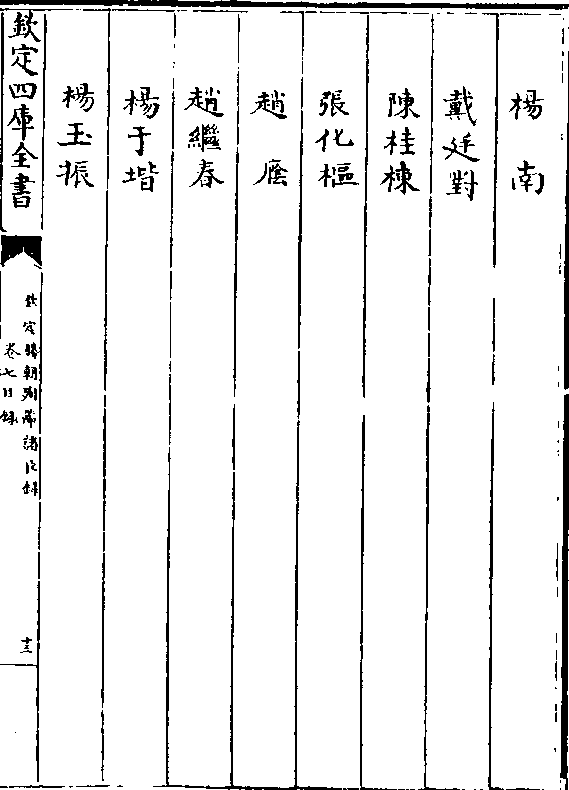 楊南
戴廷對
陳桂棟
張化樞
趙㢙
趙繼春
楊于堦
楊玉振
欽定四庫全書
欽定勝朝殉節諸臣錄
卷七目錄
十三